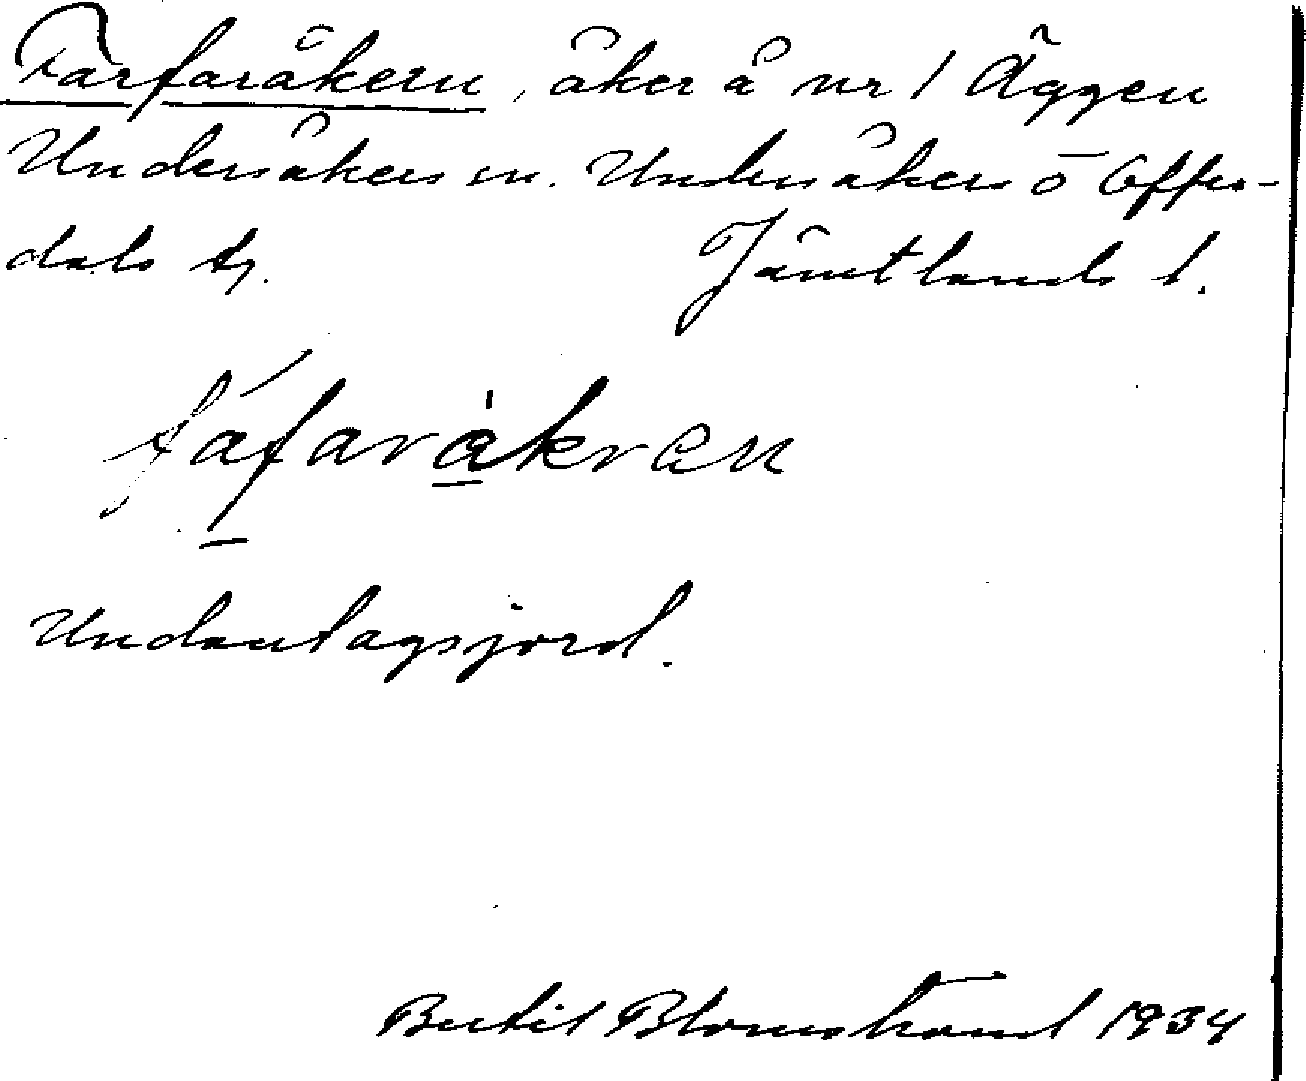 Farfaråkern, åker å nr 1 Äggen
Undersåkers sn. Undersåkers o Offer-
dals tg. Jämtlands l.
fáfaråkran
Undantagsjord.
Bertil Blomstrand 1934